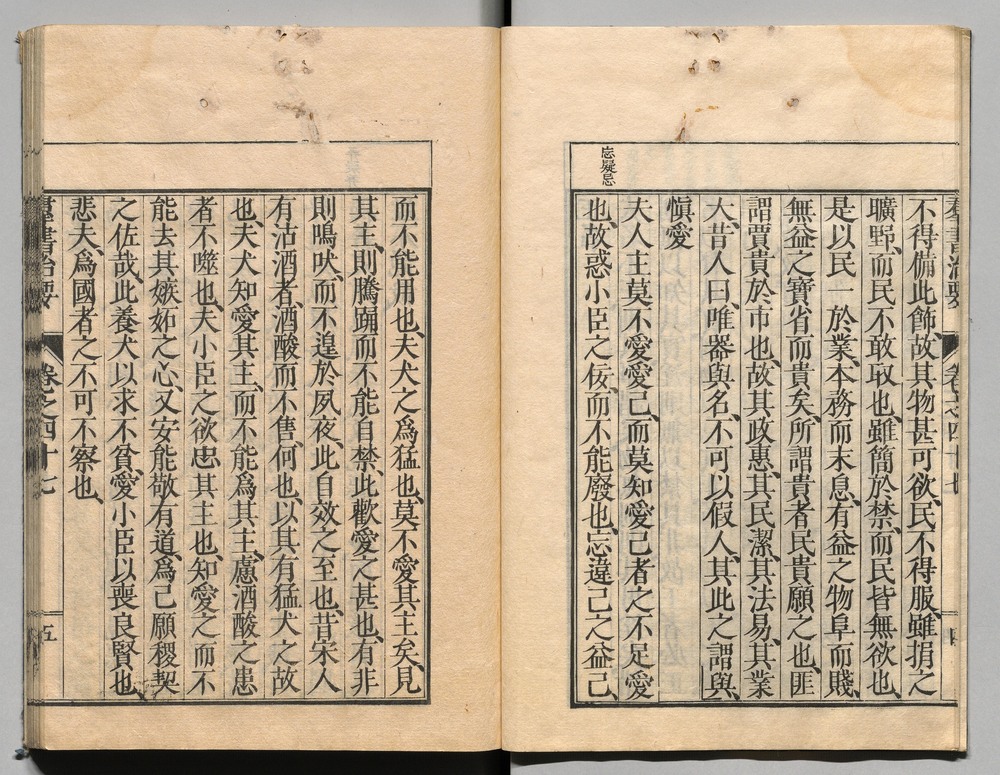 羣書治要
卷之四十七
四
不得備此飾故其物甚可欲民不得服雖捐之
曠野而民不敢取也雖簡於禁而民皆無欲也
是以民一於業本務而末息有益之物阜而賤
無益之寶省而貴矣所謂貴者民貴願之也匪
謂賈貴於市也故其政惠其民潔其法易其業
大昔人曰唯器與名不可以假人其此之謂與
愼愛
夫人主莫不愛愛己而莫知愛己者之不足愛
也故惑小臣之佞而不能廢也忘違己之益己
忘疑忌
而不能用也夫犬之爲猛也莫不愛其主矣見
其主則騰踊而不能自禁此歡愛之甚也有非
則鳴吠而不遑於夙夜此自效之至也昔宋人
有沽酒者酒酸而不售何也以其有猛犬之故
也夫犬知愛其主而不能爲其主慮酒酸之患
者不噬也夫小臣之欲忠其主也知愛之而不
能去其嫉妬之心又安能敬有道爲己願稷契
之佐哉此養犬以求不貧愛小臣以喪良賢也
悲夫爲國者之不可不察也
羣書治要
卷之四十七
五